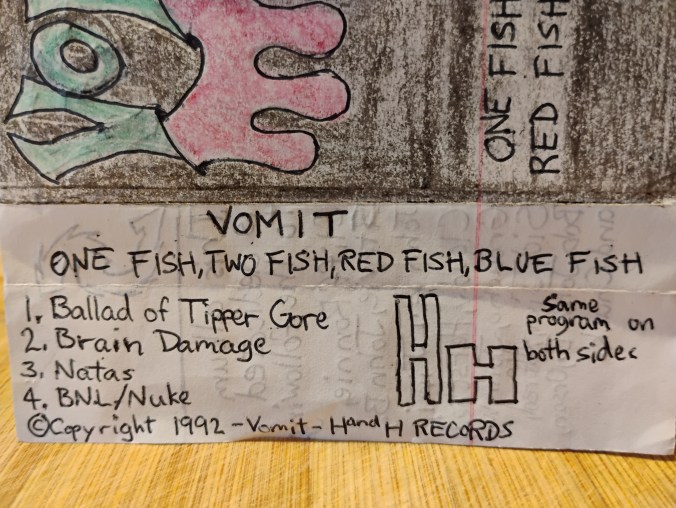 ONE FISH
RED FISH
VOMIT
ONE FISH, TWO FISH, RED FISH, BLUE FISH
1. Ballad of Tipper Gore
2. Brain Damage
3. Natas
4. BNL/Nuke
HH
Same
program on
both sides
©Copyright 1992 - Vomit - H and H RECORDS